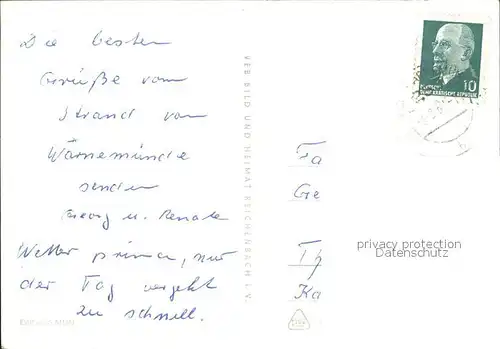 Die besten
Grüße vom
Strand von
Warnemünde
senden
Georg u. Renate
Wetter prima, nur
der Tag vergeht
zu schnell.
VEB BILD UND HEIMAT REICHENBACH I. V.
10
DEUTSCHE
DEMOKRATISCHE REPUBLIK
Fa
Ge
Th
Ka
privacy protection
Datenschutz